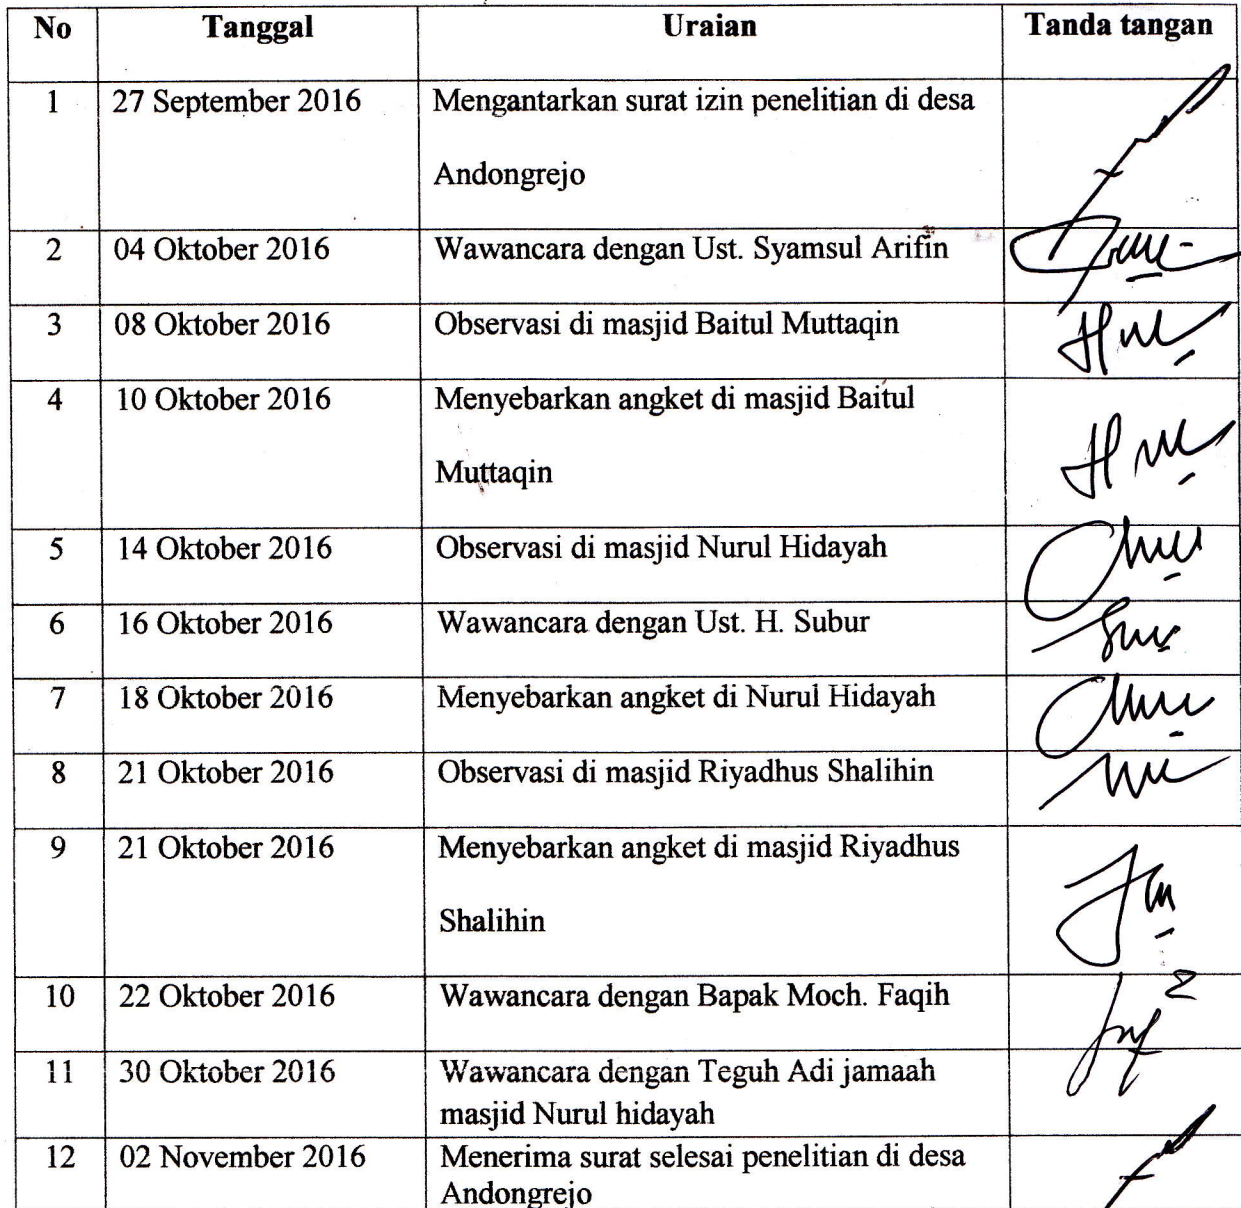 No Tanggal Uraian Tanda tangan
1 27 September 2016 Mengantarkan surat izin penelitian di desa
Andongrejo
2 04 Oktober 2016 Wawancara dengan Ust. Syamsul Arifin
3 08 Oktober 2016 Observasi di masjid Baitul Muttaqin
4 10 Oktober 2016 Menyebarkan angket di masjid Baitul
Muttaqin
5 14 Oktober 2016 Observasi di masjid Nurul Hidayah
6 16 Oktober 2016 Wawancara dengan Ust. H. Subur
7 18 Oktober 2016 Menyebarkan angket di Nurul Hidayah
8 21 Oktober 2016 Observasi di masjid Riyadhus Shalihin
9 21 Oktober 2016 Menyebarkan angket di masjid Riyadhus
Shalihin
10 22 Oktober 2016 Wawancara dengan Bapak Moch. Faqih
11 30 Oktober 2016 Wawancara dengan Teguh Adi jamaah
masjid Nurul hidayah
12 02 November 2016 Menerima surat selesai penelitian di desa
Andongrejo